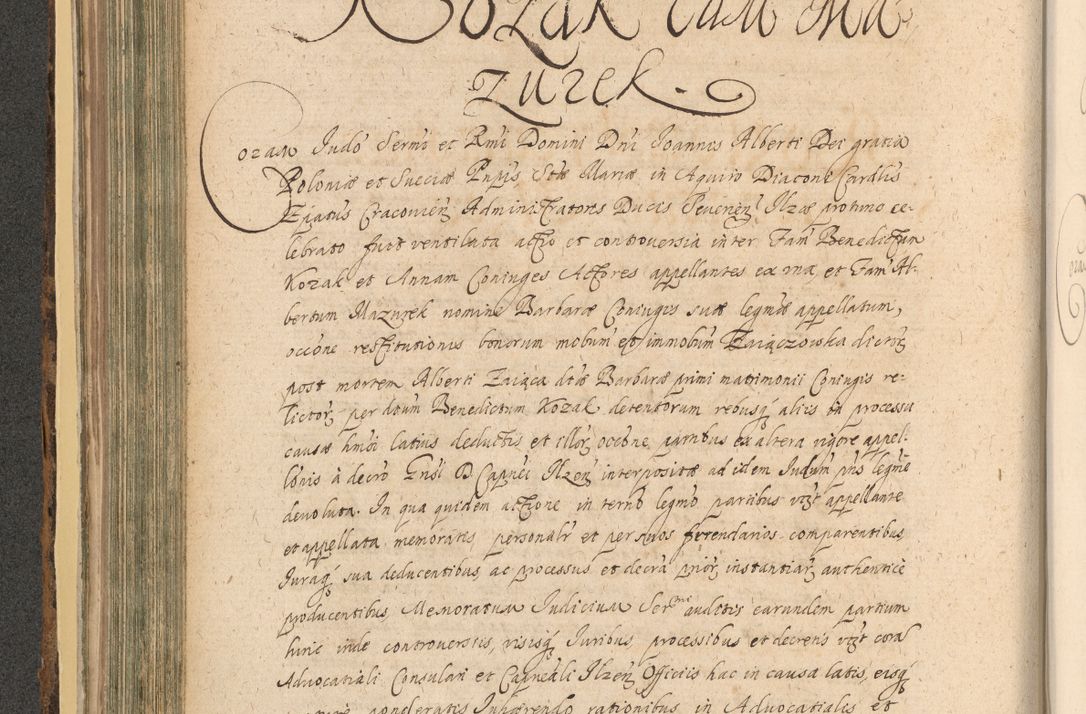 Kozak cum Ma
zurek.
Coram Judo Sermi et Rmi Domini Dni Joannis Alberti Dei gratia
Poloniæ et Sueciæ Prpis Stæ Mariæ in Aquiro Diaconi Cardlis
Epatus Cracovien Administratores Ducis Severien Ilzæ proximo ce-
lebrato fuit ventilata actio et controversia inter Fam Benedictum
Kozak et Annam Coniuges Actores appellantes ex una, et Fam Al-
bertum Mazurek nomine Barbaræ Coniugis suæ legmæ appellatum,
occōne restitutionis bonorum mobium et immobium Zaiączowska dictor
post mortem Alberti Zaiąca dtæ Barbaræ primi matrimonii Coniugis re-
lictor per dtum Benedictum Kozak detentorum rebusq aliis in processu
causæ hmōi latius deductis et illor occōne partibus ex altera vigore appel-
lonis à decro D Capnei Ilzen interpositæ ad idem Judum pns legmē
devoluta. In qua quidem actione in termo legmo partibus vizt appellante
et appellata memoratis, personalr et per suos ferendarios comparentibus
Juraq sua deducentibus, ac processus et decra prior instantiar authenticè
producentibus, Memoratum Judicium Sermi auditis earundem partium
hinc inde controversiis, visisq Juribus, processibus et decretis vizt coral
Advocatiali Consulari et Capneali Ilzen Officiis hac in causa latis, eisq
ponderatis Inhærendo rationibus in Advocatialis et